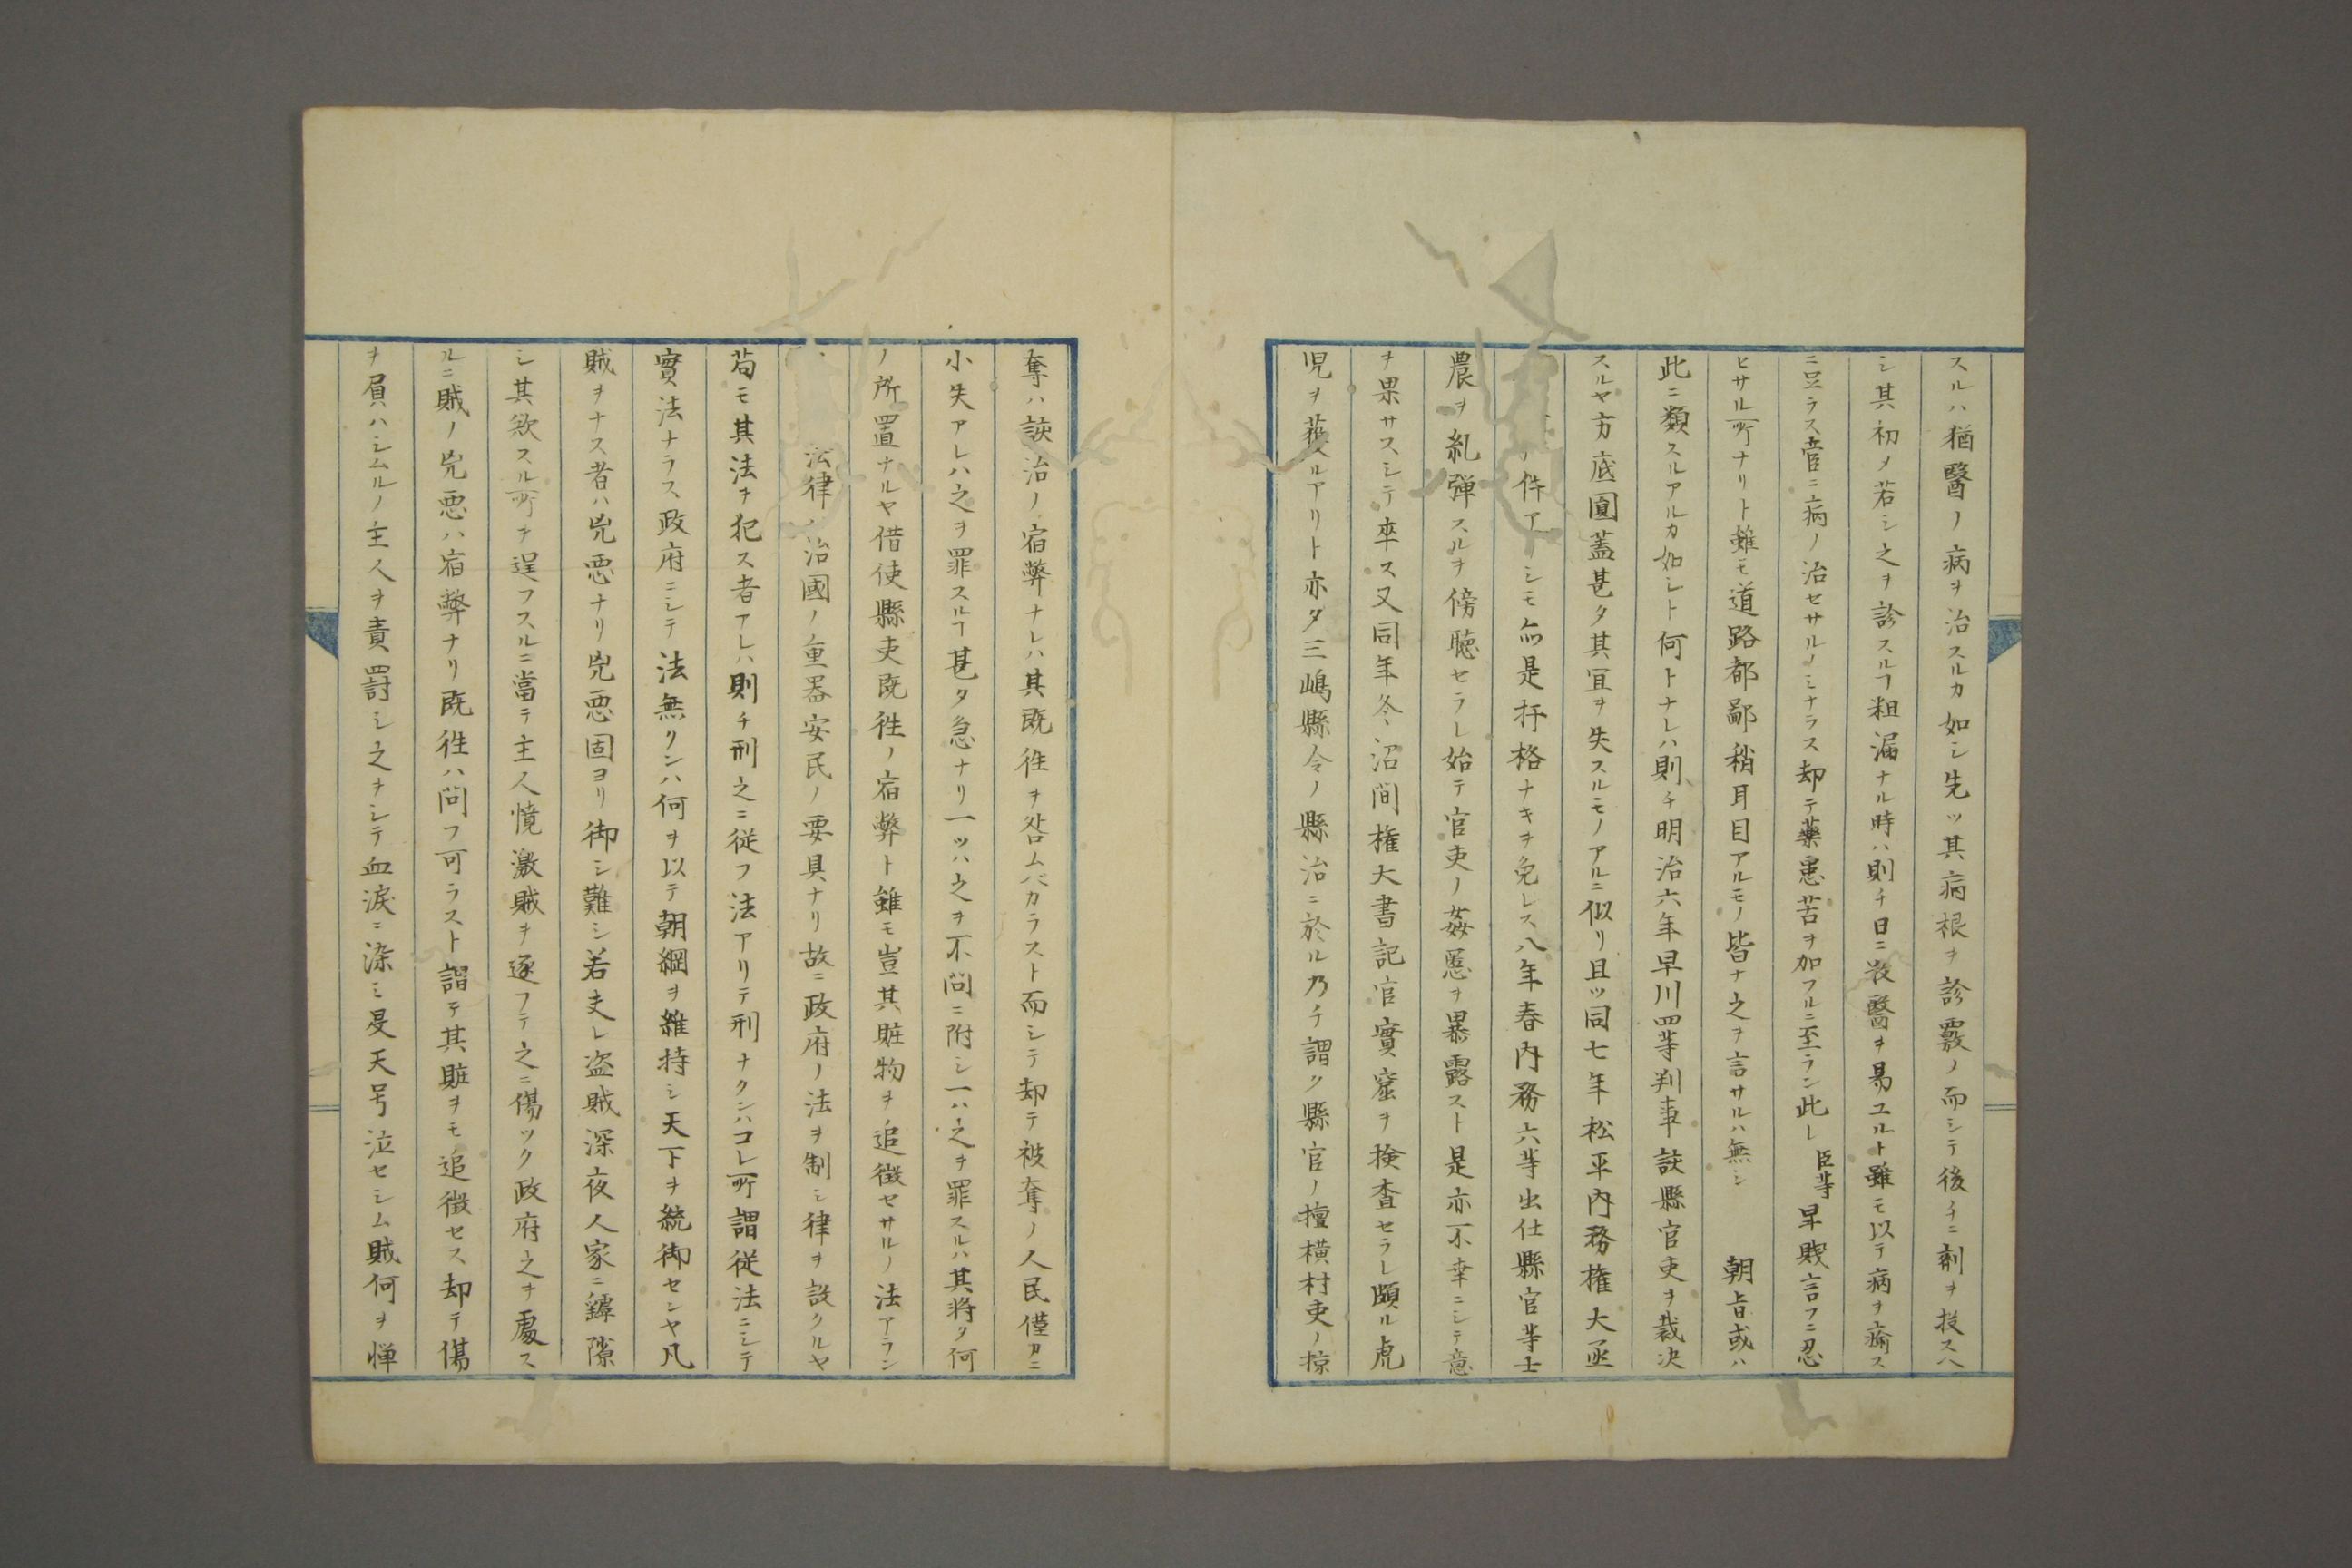 スルハ猶醫ノ病ヲ治スルカ如シ先ツ其病根ヲ診覈ノ而シテ後チニ剤ヲ投スヘ
シ其初メ若シ之ヲ診スルヿ粗漏ナル時ハ則チ日ニ衆醫ヲ易ユルト雖モ以テ病ヲ癒ス
ニ足ラス啻ニ病ノ治セサルノミナラス却テ藥患苦ヲ加フルニ至ラン此レ臣等卑賎言フニ忍
ヒサル所ナリト雖モ道路都鄙稍耳目アルモノ皆ナ之ヲ言サルハ無シ 朝旨或ハ
此ニ類スルアルカ如シト何トナレハ則チ明治六年早川四等判事該縣官吏ヲ裁決
スルヤ方底圓蓋甚タ其宜ヲ失スルモノアルニ似リ且ツ同七年松平内務権大丞
件アリシモ亦是扞格ナキヲ免レス八年春内務六等出仕縣官等士
農ヲ糺彈スルヲ傍聴セラレ始テ官吏ノ姦慝ヲ暴露スト是亦不幸ニシテ意
ヲ果サスシテ卒ス又同年冬沼間権大書記官實窟ヲ検査セラレ頗ル虎
児ヲ獲ルアリト亦タ三嶋縣令ノ縣治ニ於ル乃チ謂ク縣官ノ擅横村吏ノ掠
奪ハ該治ノ宿弊ナレハ其既徃ヲ咎ムベカラスト而シテ却テ被奪ノ人民僅カニ
小失アレハ之ヲ罪スルヿ甚タ急ナリ一ツハ之ヲ不問ニ附シ一ハ之ヲ罪スルハ其将タ何
ノ所置ナルヤ借使縣吏既徃ノ宿弊ト雖モ豈其賍物ヲ追徴セサルノ法アラン
法律ノ治國ノ重器安民ノ要具ナリ故ニ政府ノ法ヲ制シ律ヲ設クルヤ
苟モ其法ヲ犯ス者アレハ則チ刑之ニ従フ法アリテ刑ナクンハコレ所謂従法ニシテ
實法ナラス政府ニシテ法無クンハ何ヲ以テ朝綱ヲ維持シ天下ヲ統御センヤ凡
賊ヲナス者ハ兇悪ナリ兇悪固ヨリ御シ難シ若夫レ盗賊深夜人家ニ罅隙
シ其欲スル所ヲ逞フスルニ當テ主人憤激賊ヲ逐フテ之ニ傷ツク政府之ヲ處ス
ルニ賊ノ兇悪ハ宿弊ナリ既徃ハ問フ可ラスト謂テ其賍ヲモ追徴セス却テ傷
ヲ負ハシムルノ主人ヲ責罰シ之ヲシテ血涙ニ染ミ旻天号泣セシム賊何ヲ憚